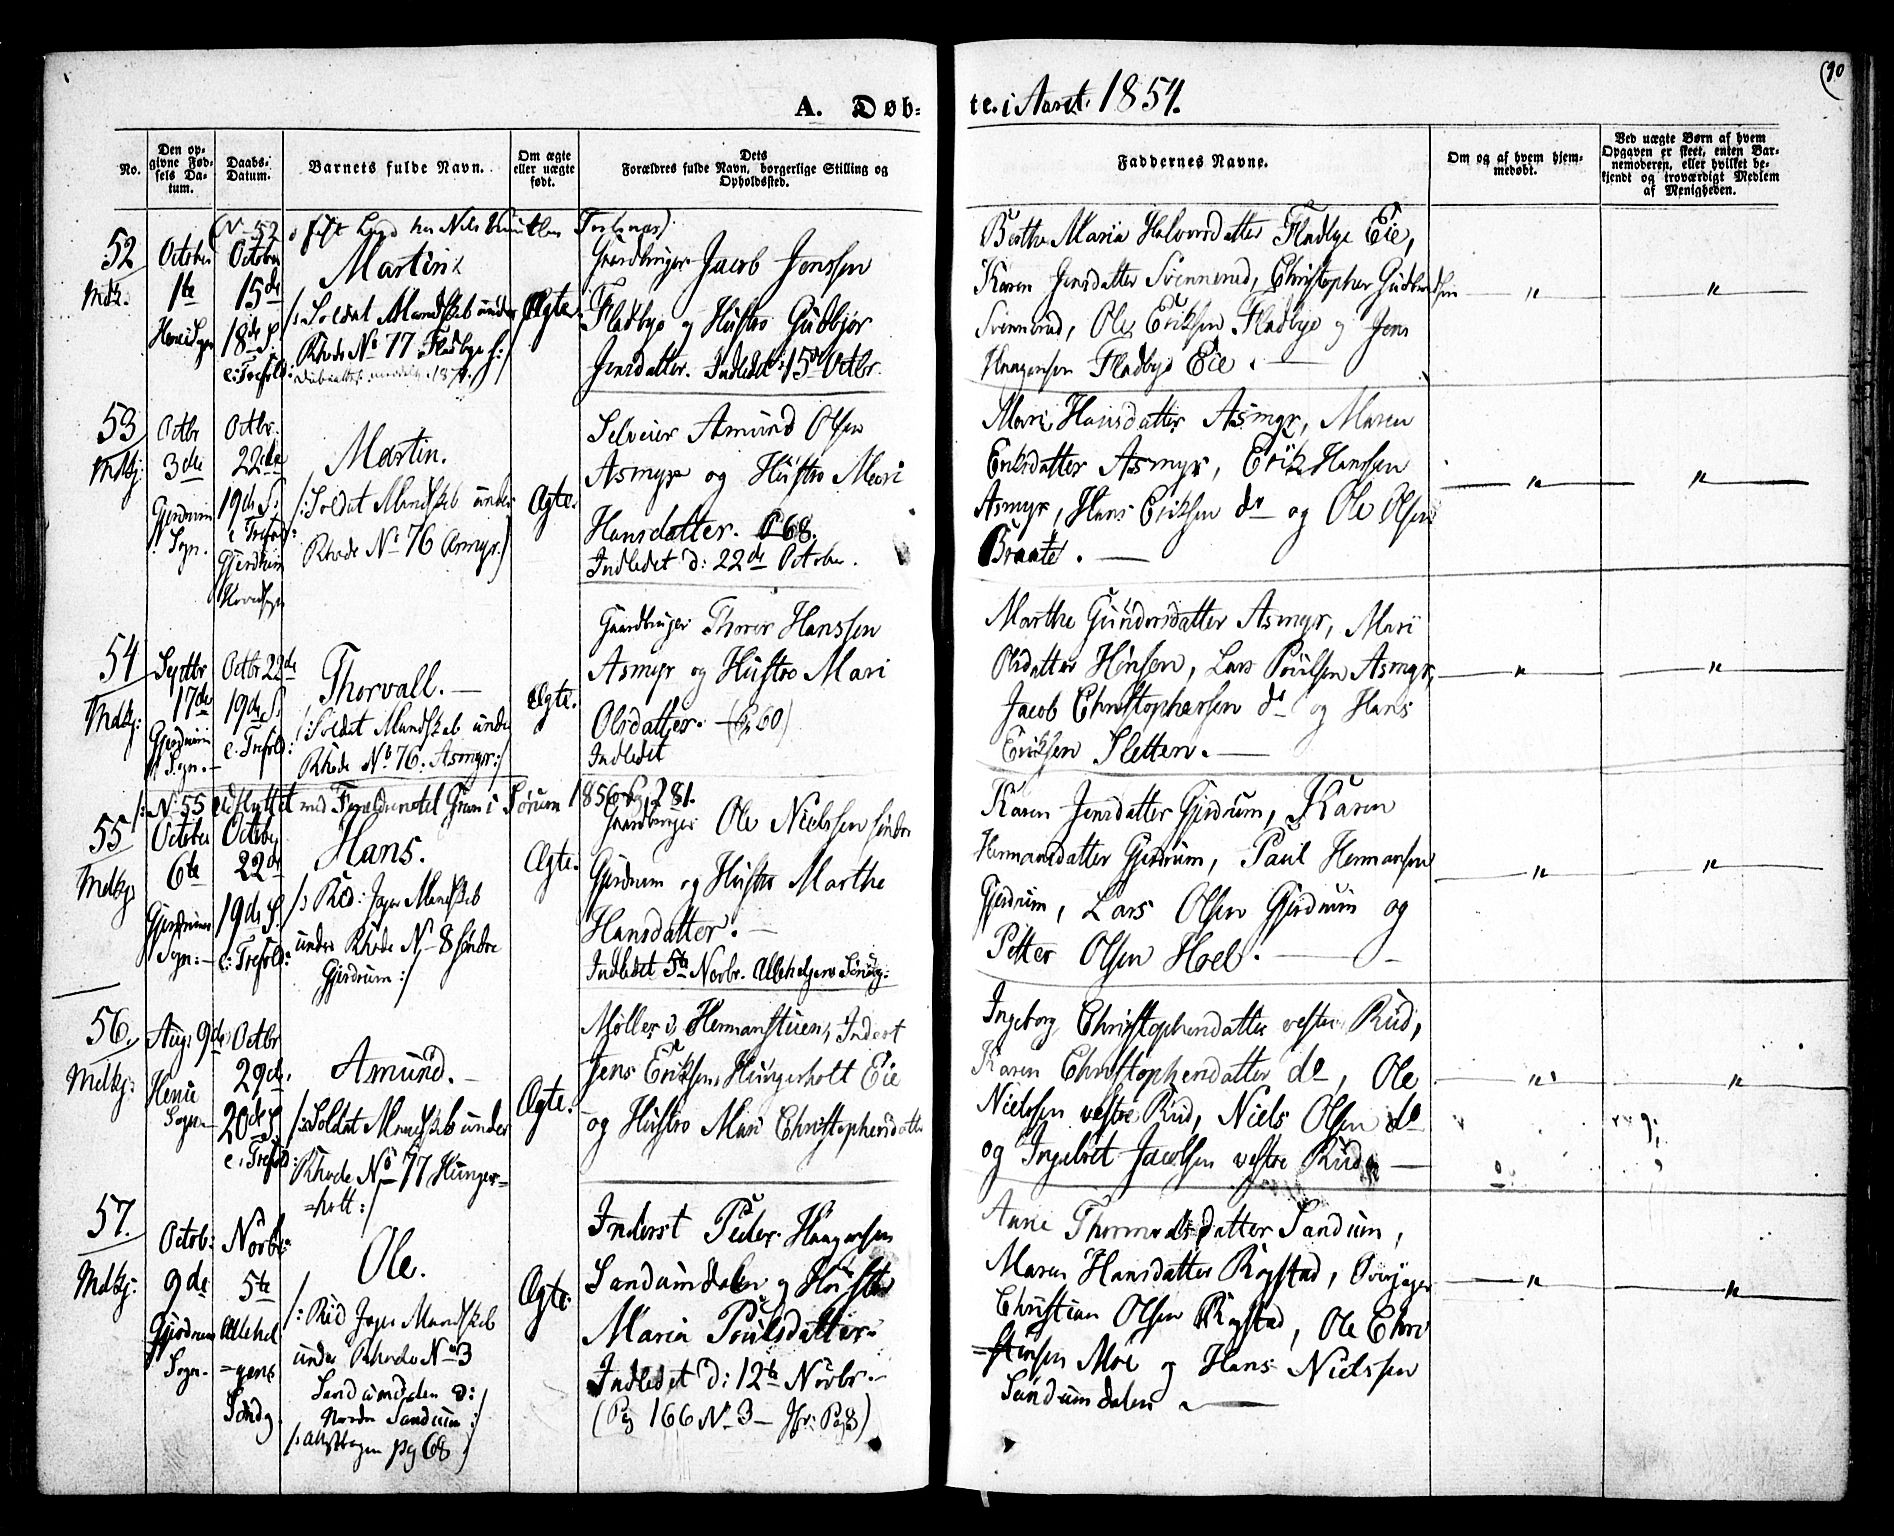 90
A. Døb-
te. i Aaret. 1854.
No.
Den op-
givne Fød-
sels Da-
tum.
Daabs-
Datum.
Barnets fulde Navn.
Om ægte
eller uægte
født.
Dets
Forældres fulde Navn, borgerlige Stilling og
Opholdssted.
Faddernes Navne.
Om og af hvem hjem-
medøbt.
Ved uægte Børn af hvem
Opgaven er skeet, enten Bar-
nemoderen, eller hvilket be-
kjendt og troværdigt Medlem
af Menigheden.
52
October
1te
October
15de
18de S.
e: Trefold:
Martin
/: Soldat Mandskab under
Rhode No 77 Fladbye :/
Ægte.
Gaardbruger Jacob Jenssen
Fladbye og Hustro Gudbjør
Jensdatter. Indledet 15de Octbr.
Berthe Maria Halvorsdatter Fladbye Eie,
Karen Jensdatter Svennerud, Christopher Gudbrandsen
Svennerud, Ole Eriksen Fladbye og Jens
Haagensen Fladbye Eie. —
53
Octbr
3de
Gjerdrum
Sogn.
Octbr.
22de
19de S.
e Trefold:
Gjerdrum
Hovedsogn
Martin.
/: Soldat Mandskab under
Rhode No 76 Asmyr :/
Ægte.
Selveier Amund Olsen
Asmyr og Hustro Mari
Hansdatter. 68.
Indledet d: 22de October.
Mari Hansdatter Asmyr, Maren
Eriksdatter Asmyr, Erik Hanssen
Asmyr, Hans Eriksen do og Ole Olsen
Braate. —
54
Septbr
17de
Gjerdrum
Sogn. —
Octbr 22de
19de S
e. Trefold:
Thorvall. —
/: Soldat Mandskab under
Rhode No 76. Asmyr :/
Ægte.
Gaardbruger Thorer Hanssen
Asmyr og Hustro Mari
Olsdatter. — 60)
Indledet
Marthe Gundersdatter Asmyr, Mari
Olsdatter Hønsen, Lars Poulsen Asmyr,
Jacob Christophersen do og Hans
Eriksen Sletten. —
/: No 55 udflyttet med Forældrene til Gran i Sørum 1856 Pg 281.
55
October
6te
Gjerdrum
Sogn: —
October
22de
19de S.
e: Trefold:
Hans.
/: Rid: Jæger Mandskab
under Rhode No 8 søndre
Gjerdrum :/
Ægte.
Gaardbruger Ole Nielssen søndre
Gjerdrum og Hustro Marthe
Hansdatter. —
Indledet 5te Novbr. Allehelgens Søndag:
Karen Jensdatter Gjerdrum, Karen
Hermansdatter Gjerdrum, Paul Hermansen
Gjerdrum, Lars Olsen Gjerdrum og
Petter Olsen Hoel. —
56.
Aug: 9de
Heni
Sogn
Octbr
29de.
20de S
e. Trefold:
Amund. —
/: Soldat Mandskab under
Rhode No 77 Hunger-
=holt :/
Ægte.
Møller i Hermanstuen, Inderst
Jens Eriksen, Hungerholt Eie
og Hustro Mari Christophersdatter
Ingeborg Christophersdatter vestre Rud,
Karen Christophersdatter do, Ole
Nielssen vestre Rud, Niels Olsen do
og Ingebret Jacobsen vestre Rud. —
57.
Octob:
9de
Gjerdrum
Sogn.
Novbr.
5te
Allehel
=gens
Søndg.
Ole.
/: Rid Jæger Mandskab
under Rhode No 3
Sandumdalen
Nordre Sandum :/
pg 68
Ægte.
Inderst Peder Haagensen
Sandumdalen og Hustro
Maria Poulsdatter.
Indledet d: 12te Novbr. —
(Pg 166 No 3 —
Anne Thormodsdatter Sandum,
Maren Hansdatter Rogstad, Overjæger
Christian Olsen Rogstad, Ole Chri
=stensen Moe og Hans Nielssen
Sandumdalen —